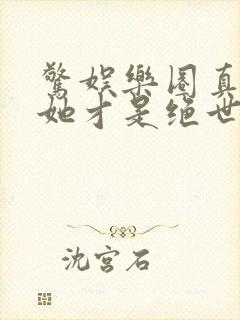 驚娛樂圈真
她才是绝世
沈宮石